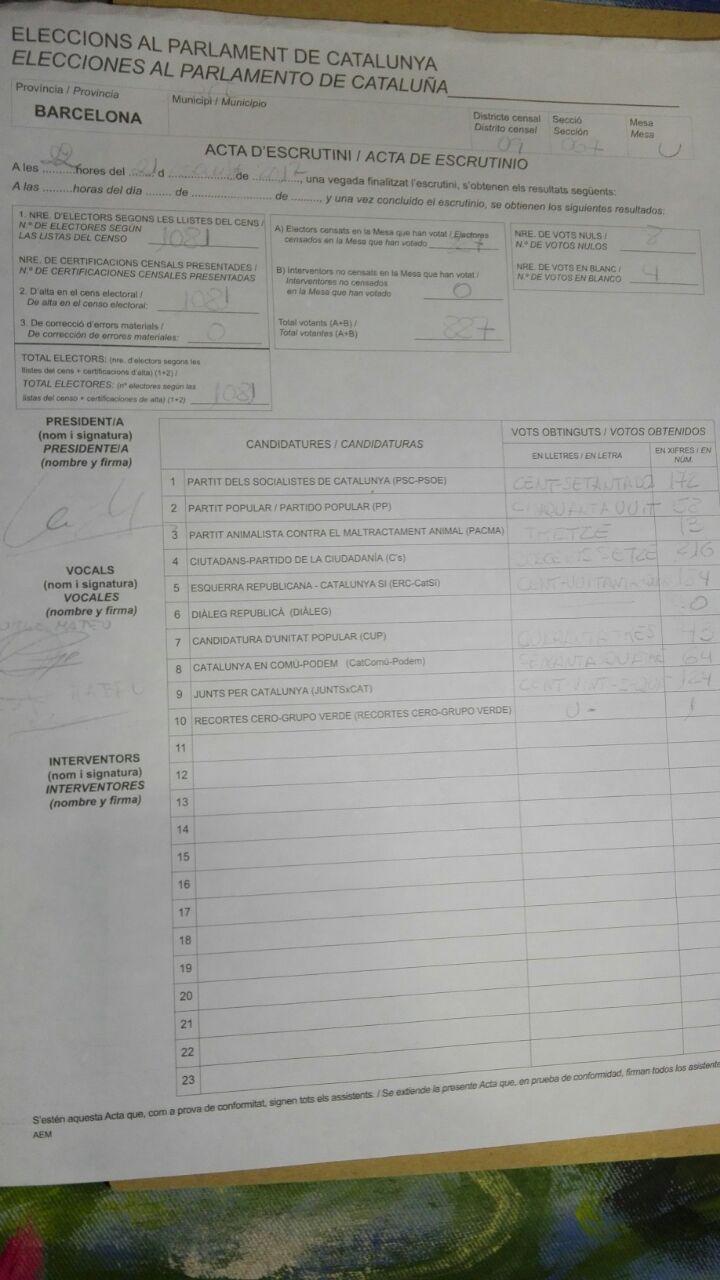 ELECCIONS AL PARLAMENT DE CATALUNYA
ELECCIONES AL PARLAMENTO DE CATALUÑA
Província / Provincia
BARCELONA
Municipi / Municipio
Districte censal
Distrito censal
09
Secció
Sección
Mesa
Mesa
U
ACTA D'ESCRUTINI / ACTA DE ESCRUTINIO
A les .........hores del ......d ..................de ............, una vegada finalitzat l'escrutini, s'obtenen els resultats següents:
A las .........horas del día ........ de ........................ de ........., y una vez concluido el escrutinio, se obtienen los siguientes resultados:
1. NRE. D'ELECTORS SEGONS LES LLISTES DEL CENS /
N.º DE ELECTORES SEGÚN
LAS LISTAS DEL CENSO 1081
NRE. DE CERTIFICACIONS CENSALS PRESENTADES /
N.º DE CERTIFICACIONES CENSALES PRESENTADAS
2. D'alta en el cens electoral /
De alta en el censo electoral: 1081
3. De correcció d'errors materials /
De corrección de errores materiales: 0
TOTAL ELECTORS: (nre. d'electors segons les
llistes del cens + certificacions d'alta) (1+2) /
TOTAL ELECTORES: (nº electores según las
listas del censo + certificaciones de alta) (1+2) 1081
A) Electors censats en la Mesa que han votat / Electores
censados en la Mesa que han votado
B) Interventors no censats en la Mesa que han votat /
Interventores no censados
en la Mesa que han votado 0
Total votants (A+B) /
Total votantes (A+B) 887
NRE. DE VOTS NULS /
N.º DE VOTOS NULOS 8
NRE. DE VOTS EN BLANC /
N.º DE VOTOS EN BLANCO 4
PRESIDENT/A
(nom i signatura)
PRESIDENTE/A
(nombre y firma)
VOCALS
(nom i signatura)
VOCALES
(nombre y firma)
MATEU
INTERVENTORS
(nom i signatura)
INTERVENTORES
(nombre y firma)
CANDIDATURES / CANDIDATURAS
VOTS OBTINGUTS / VOTOS OBTENIDOS
EN LLETRES / EN LETRA
EN XIFRES / EN
NÚM.
1 PARTIT DELS SOCIALISTES DE CATALUNYA (PSC-PSOE) CENT-SETANTADOS 172
2 PARTIT POPULAR / PARTIDO POPULAR (PP) CINQUANTA VUIT 58
3 PARTIT ANIMALISTA CONTRA EL MALTRACTAMENT ANIMAL (PACMA) TRETZE 13
4 CIUTADANS-PARTIDO DE LA CIUDADANÍA (C's) SETZE 216
5 ESQUERRA REPUBLICANA - CATALUNYA SI (ERC-CatSí) 184
6 DIÀLEG REPUBLICÀ (DIÀLEG) 0
7 CANDIDATURA D'UNITAT POPULAR (CUP) QUARANTA TRES 43
8 CATALUNYA EN COMÚ-PODEM (CatComú-Podem) SEIXANTA QUATRE 64
9 JUNTS PER CATALUNYA (JUNTSxCAT) 124
10 RECORTES CERO-GRUPO VERDE (RECORTES CERO-GRUPO VERDE) U - 1
11
12
13
14
15
16
17
18
19
20
21
22
23
S'estén aquesta Acta que, com a prova de conformitat, signen tots els assistents. / Se extiende la presente Acta que, en prueba de conformidad, firman todos los asistente
AEM